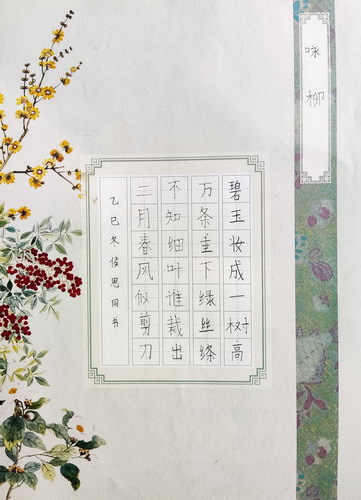 咏柳
碧玉妆成一树高
万条垂下绿丝绦
不知细叶谁裁出
二月春风似剪刀
乙巳冬侯思同书